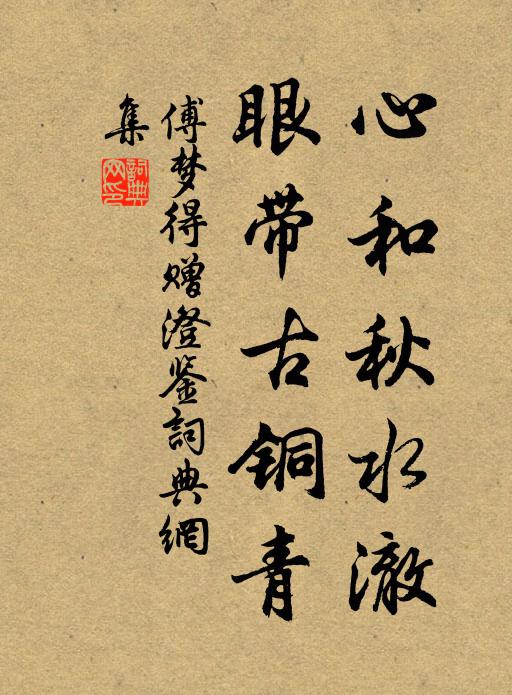 心和秋水澈
眼带古铜青
傅梦得赠澄鉴詞典網
集
詞典网印